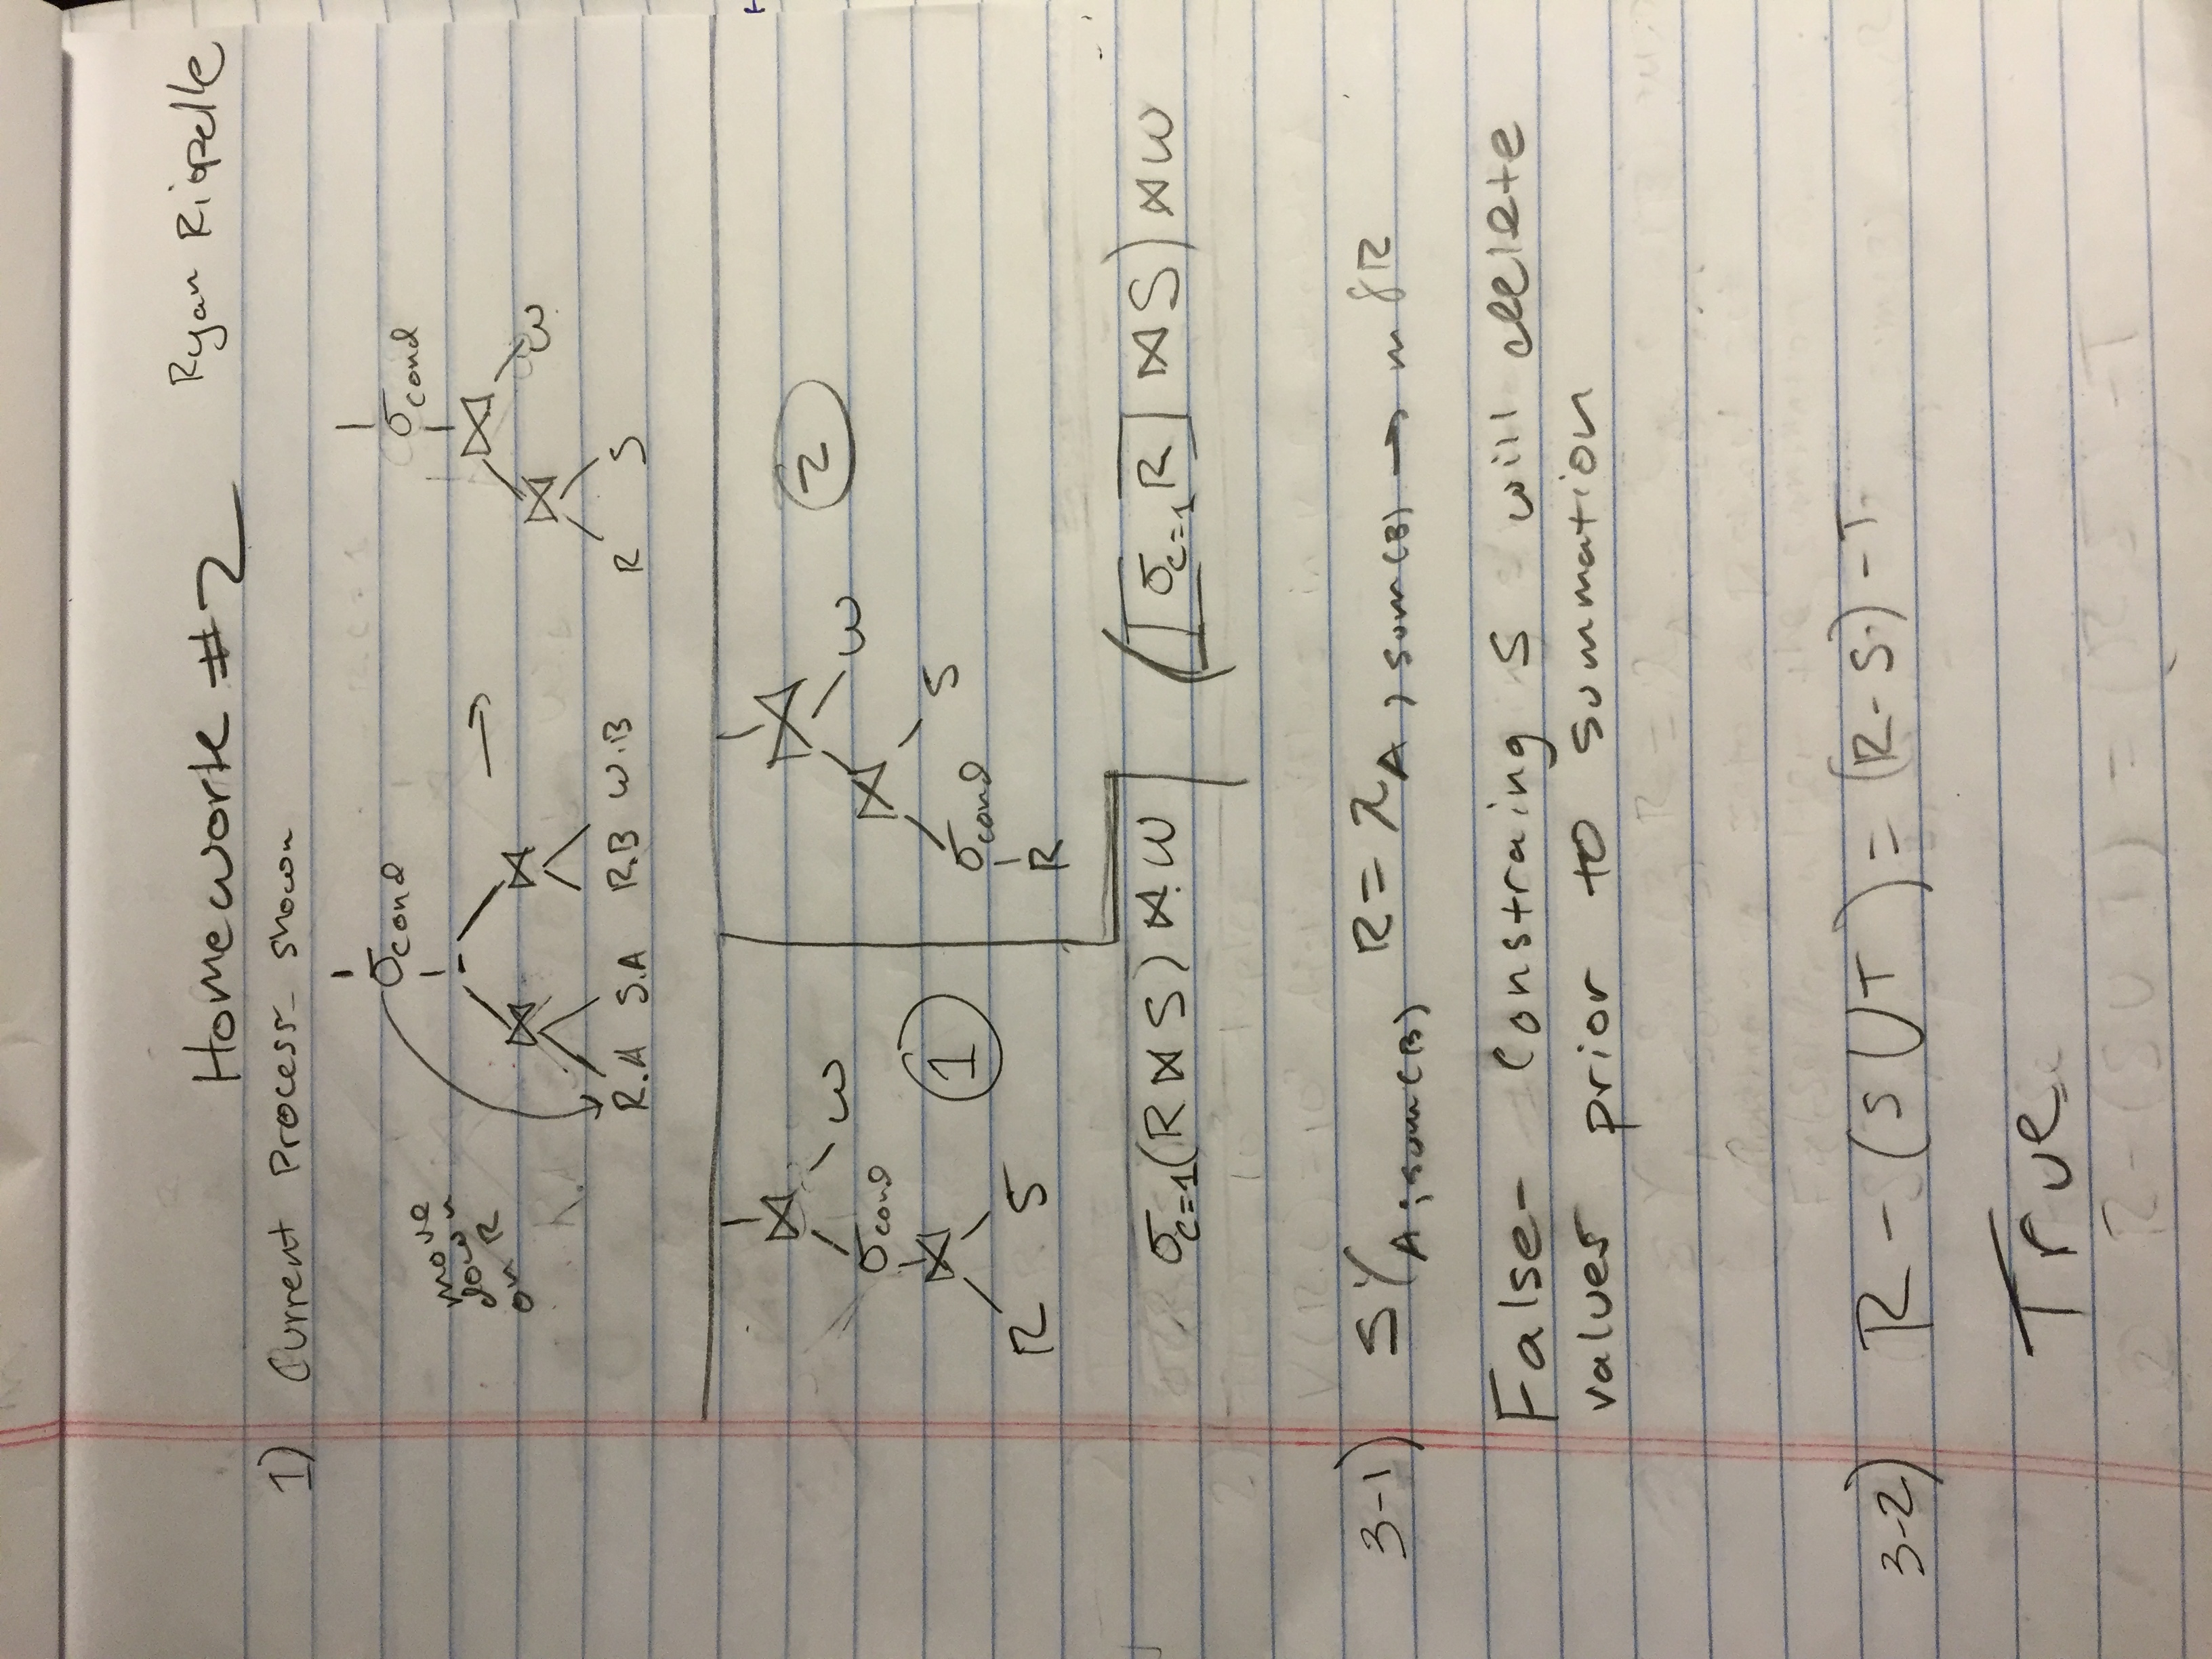 Homework #2
Ryan Riopelle
1) Current Process shown
move
down
on R
σcond
-
⋈ ⋈
R.A S.A R.B W.B
→
σcond
⋈
⋈ W
R S
⋈
σcond W
⋈
R S
1
⋈
⋈ W
σcond S
R
2
σc=1(R ⋈ S) ⋈ W
([σc=1 R] ⋈ S) ⋈ W
3-1) SγA;sum(B) R = πA, sum(B) → m δR
False- Constraing S will delete
values prior to summation
3-2) R - (S ∪ T) = (R - S) - T
True